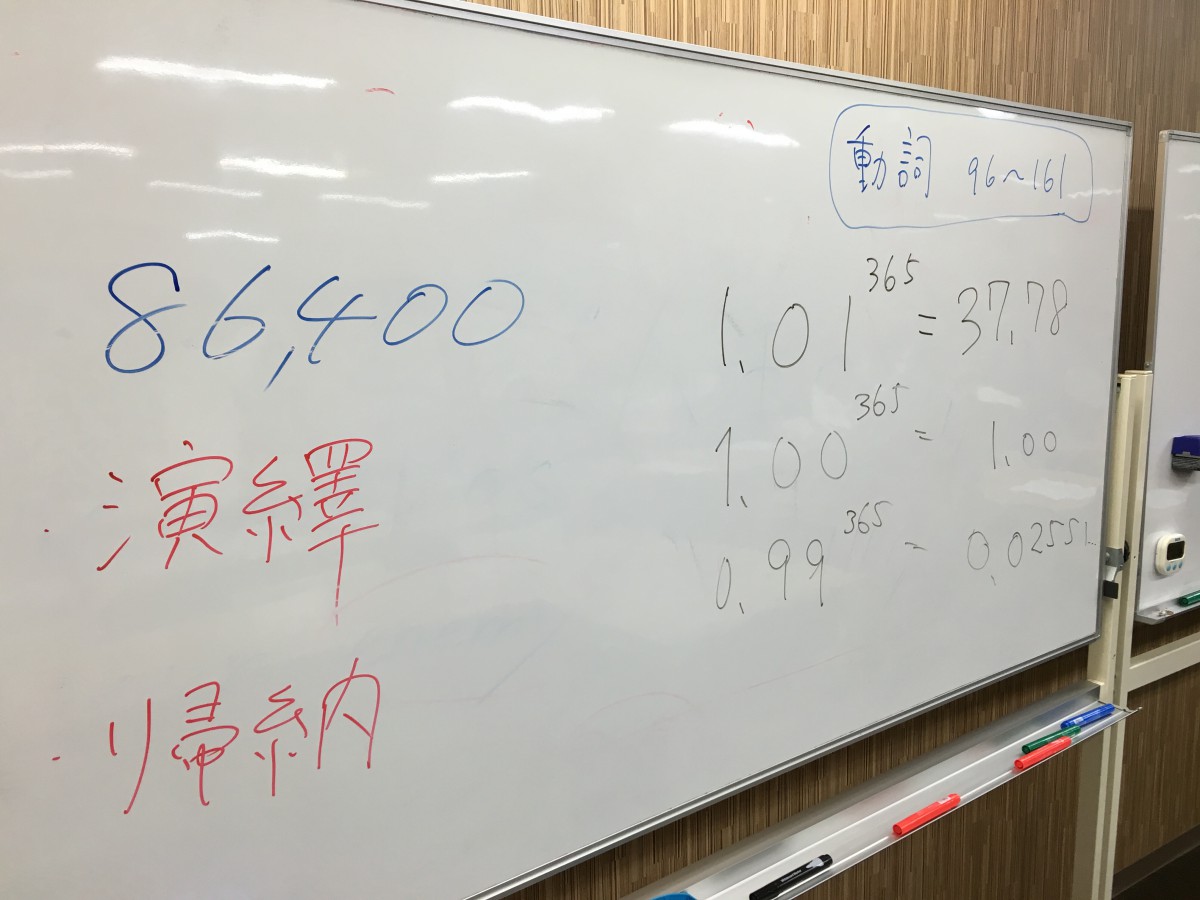 動詞 96~161
86,400
・演繹
・帰納
1.01³⁶⁵ = 37.78
1.00³⁶⁵ = 1.00
0.99³⁶⁵ = 0.02551...